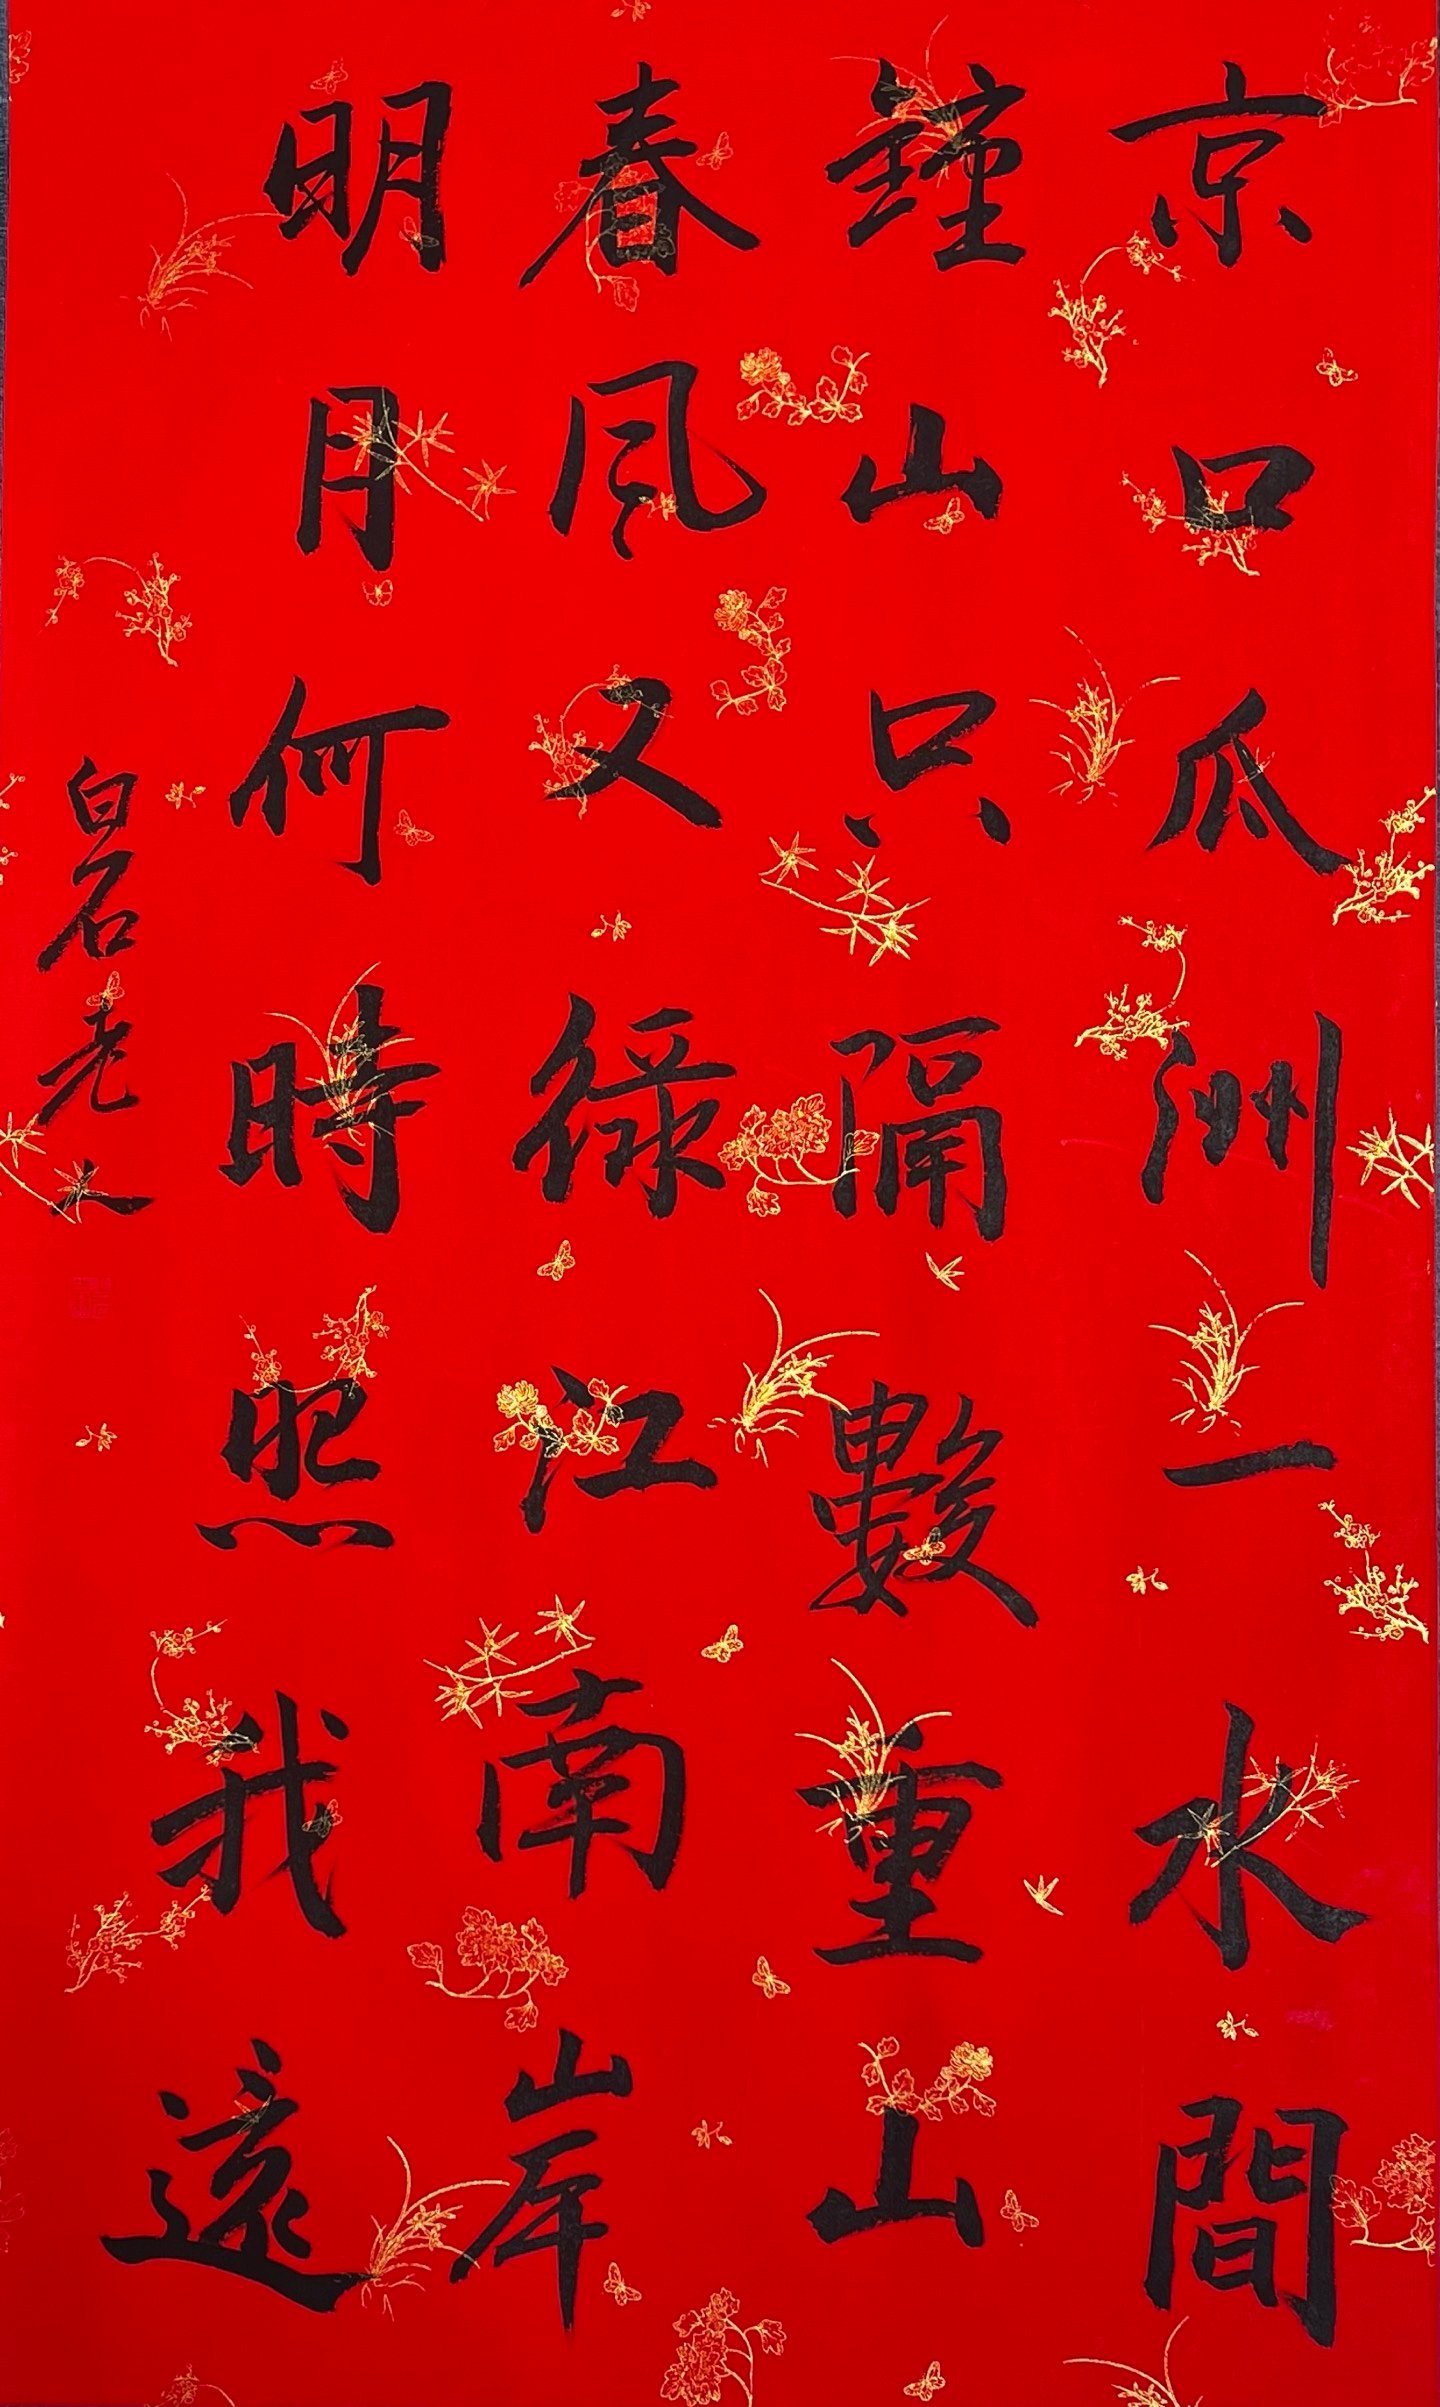 京口瓜洲一水間
鐘山只隔數重山
春風又綠江南岸
明月何時照我遠
白石老人